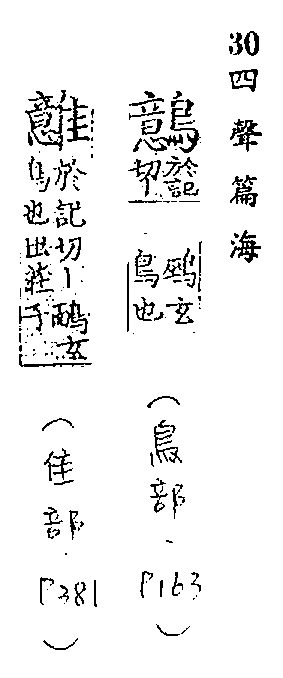 30 四聲篇海
鷾 於記
切丨
玄
鳥也
(鳥部.P163)
於記切丨鴯玄
鳥也出莊子
(隹部.P381)